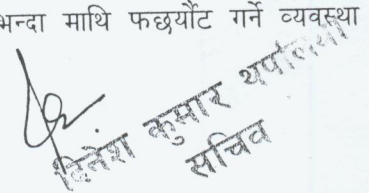 भन्दा माथि फछर्यौट गर्ने व्यवस्था
दिनेश कुमार थपलिया
सचिव